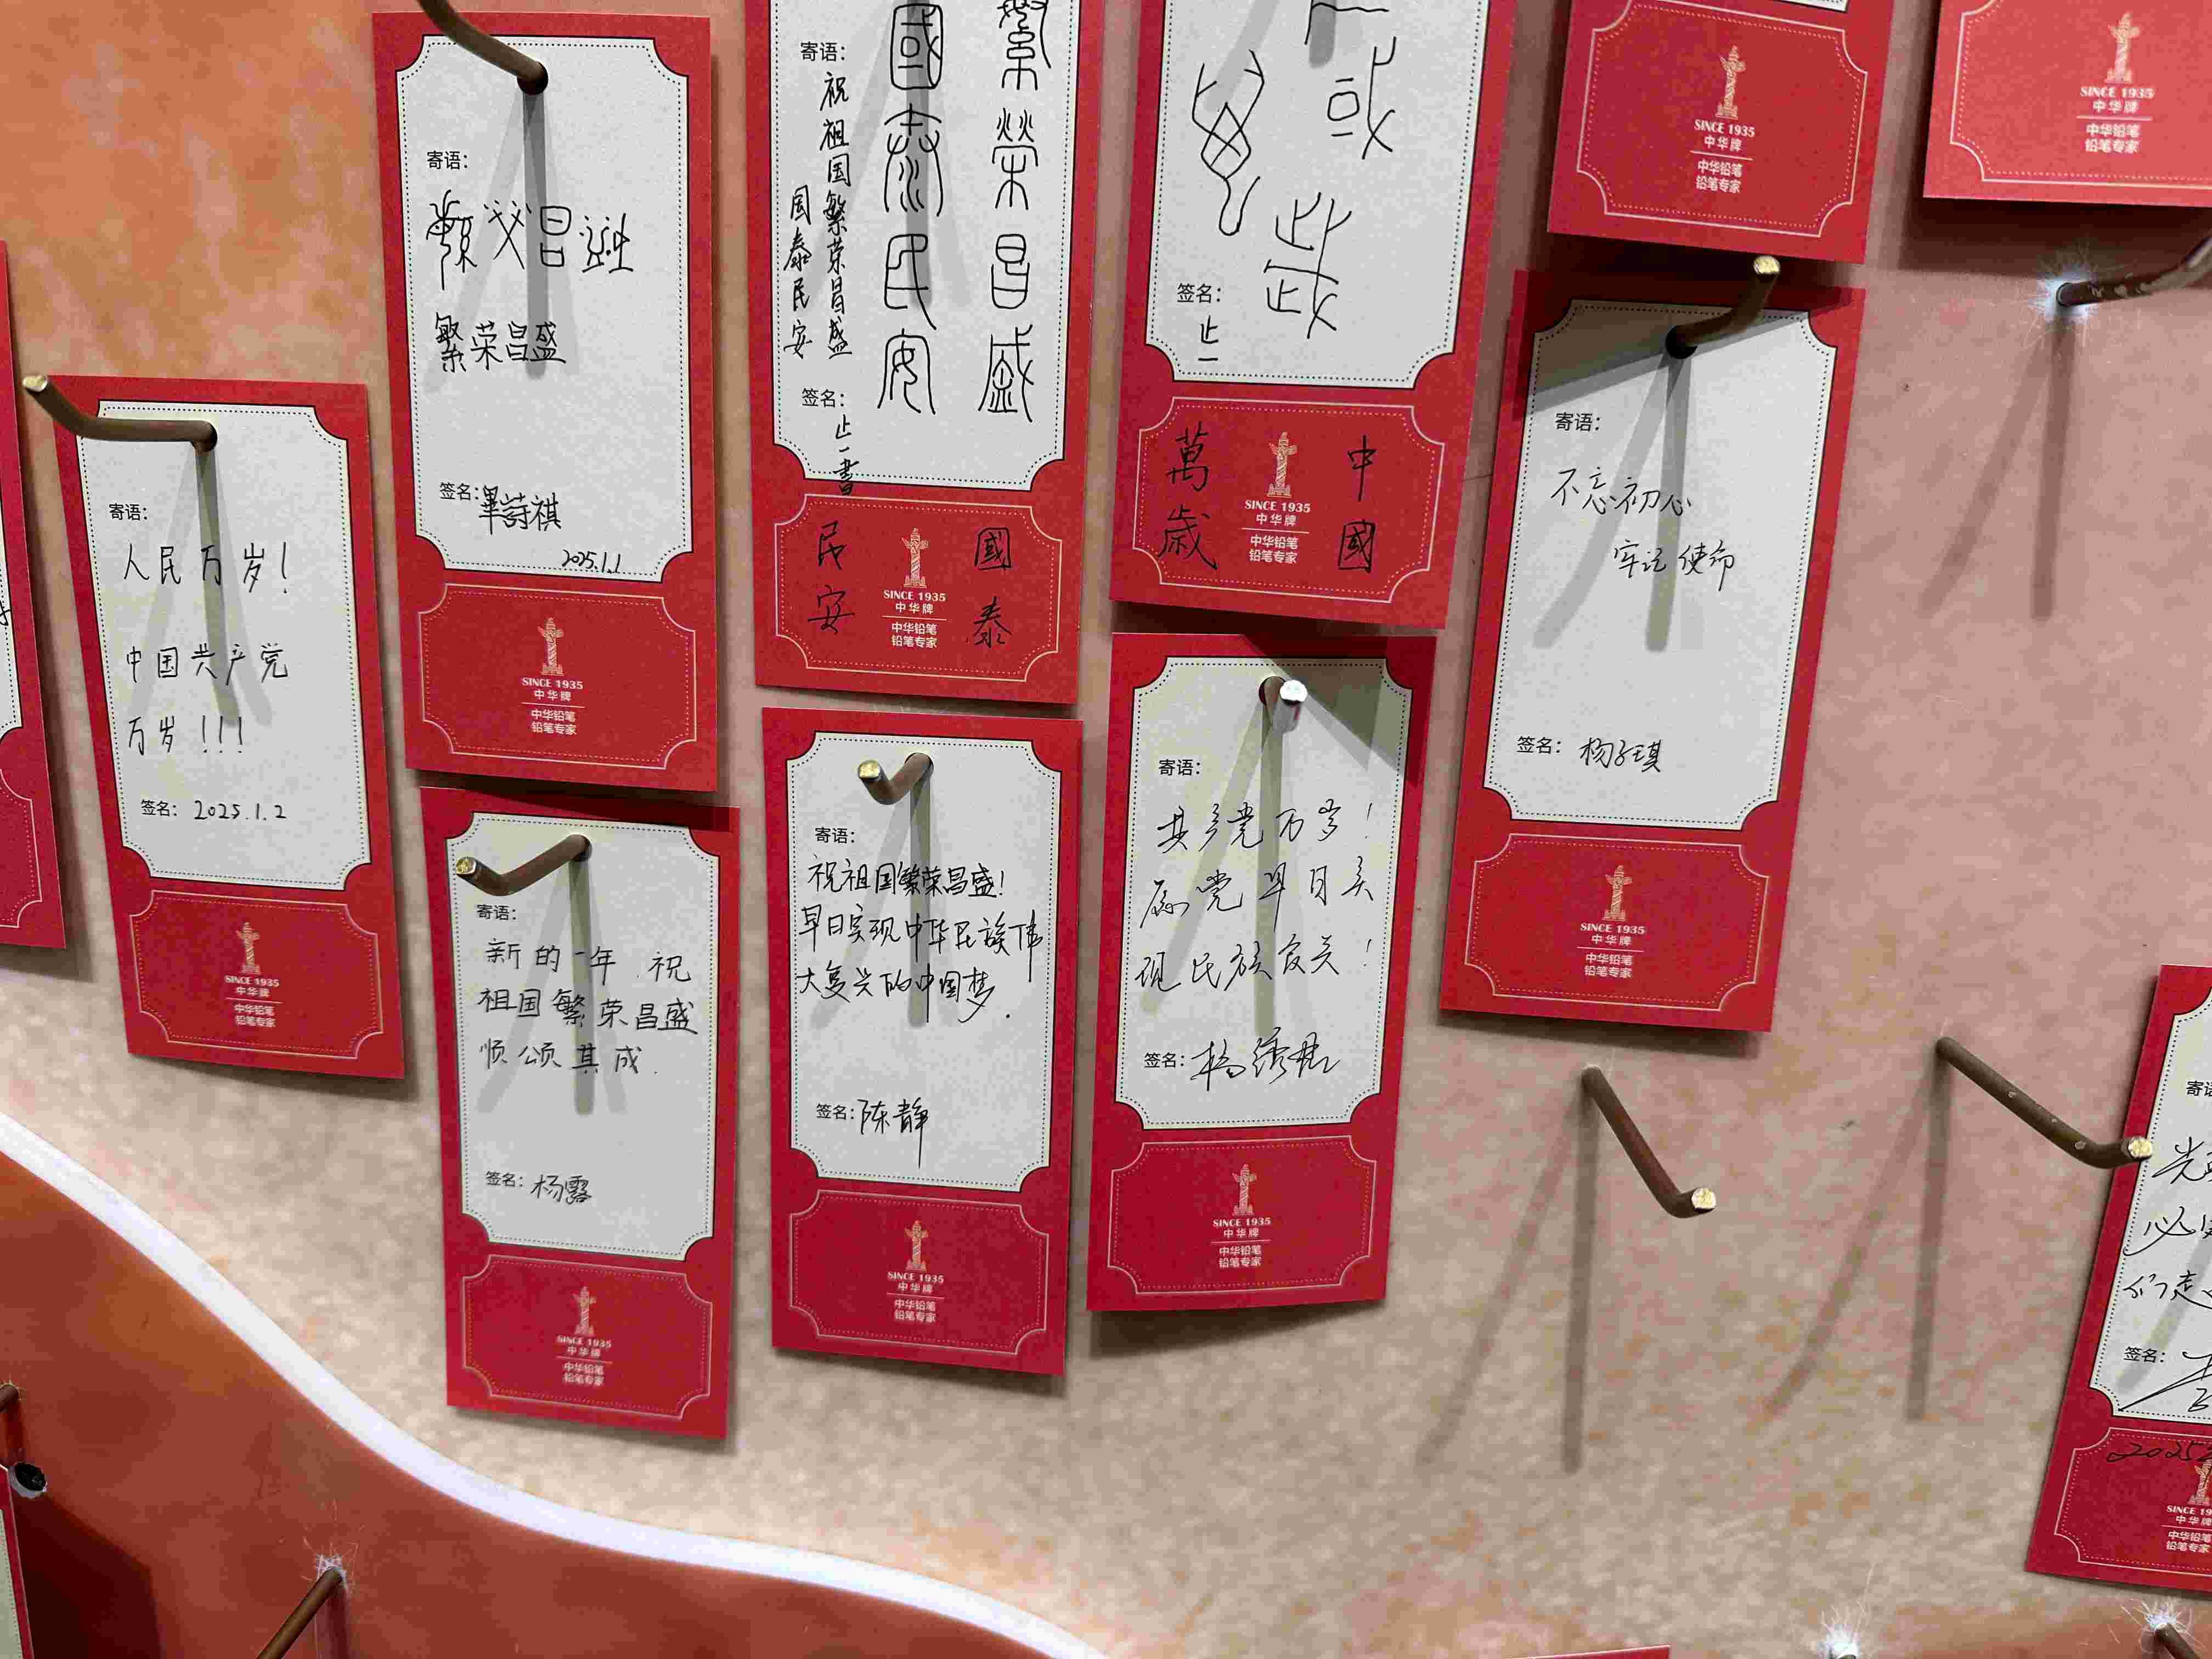 寄语：
人民万岁！
中国共产党
万岁！！！
签名： 2025.1.2
SINCE 1935
中华牌
中华铅笔
铅笔专家
寄语：
繁荣昌盛
繁荣昌盛
签名：畢詩祺
2025.1.1
SINCE 1935
中华牌
中华铅笔
铅笔专家
寄语：
祝祖国繁荣昌盛
国泰民安
繁榮昌盛
國泰民安
签名：止一書
國泰
民安
SINCE 1935
中华牌
中华铅笔
铅笔专家
签名：
止一
中國
萬歲
SINCE 1935
中华牌
中华铅笔
铅笔专家
SINCE 1935
中华牌
中华铅笔
铅笔专家
SINCE 1935
中华牌
中华铅笔
铅笔专家
寄语：
不忘初心
牢记使命
签名： 杨子琪
SINCE 1935
中华牌
中华铅笔
铅笔专家
寄语：
新的一年 祝
祖国繁荣昌盛
顺颂其成.
签名：杨露
SINCE 1935
中华牌
中华铅笔
铅笔专家
寄语：
祝祖国繁荣昌盛！
早日实现中华民族伟
大复兴的中国梦.
签名：陈静
SINCE 1935
中华牌
中华铅笔
铅笔专家
寄语：
共产党万岁！
愿党早日实
现民族复兴！
签名：杨
SINCE 1935
中华牌
中华铅笔
铅笔专家
签名：
2025
中华铅笔